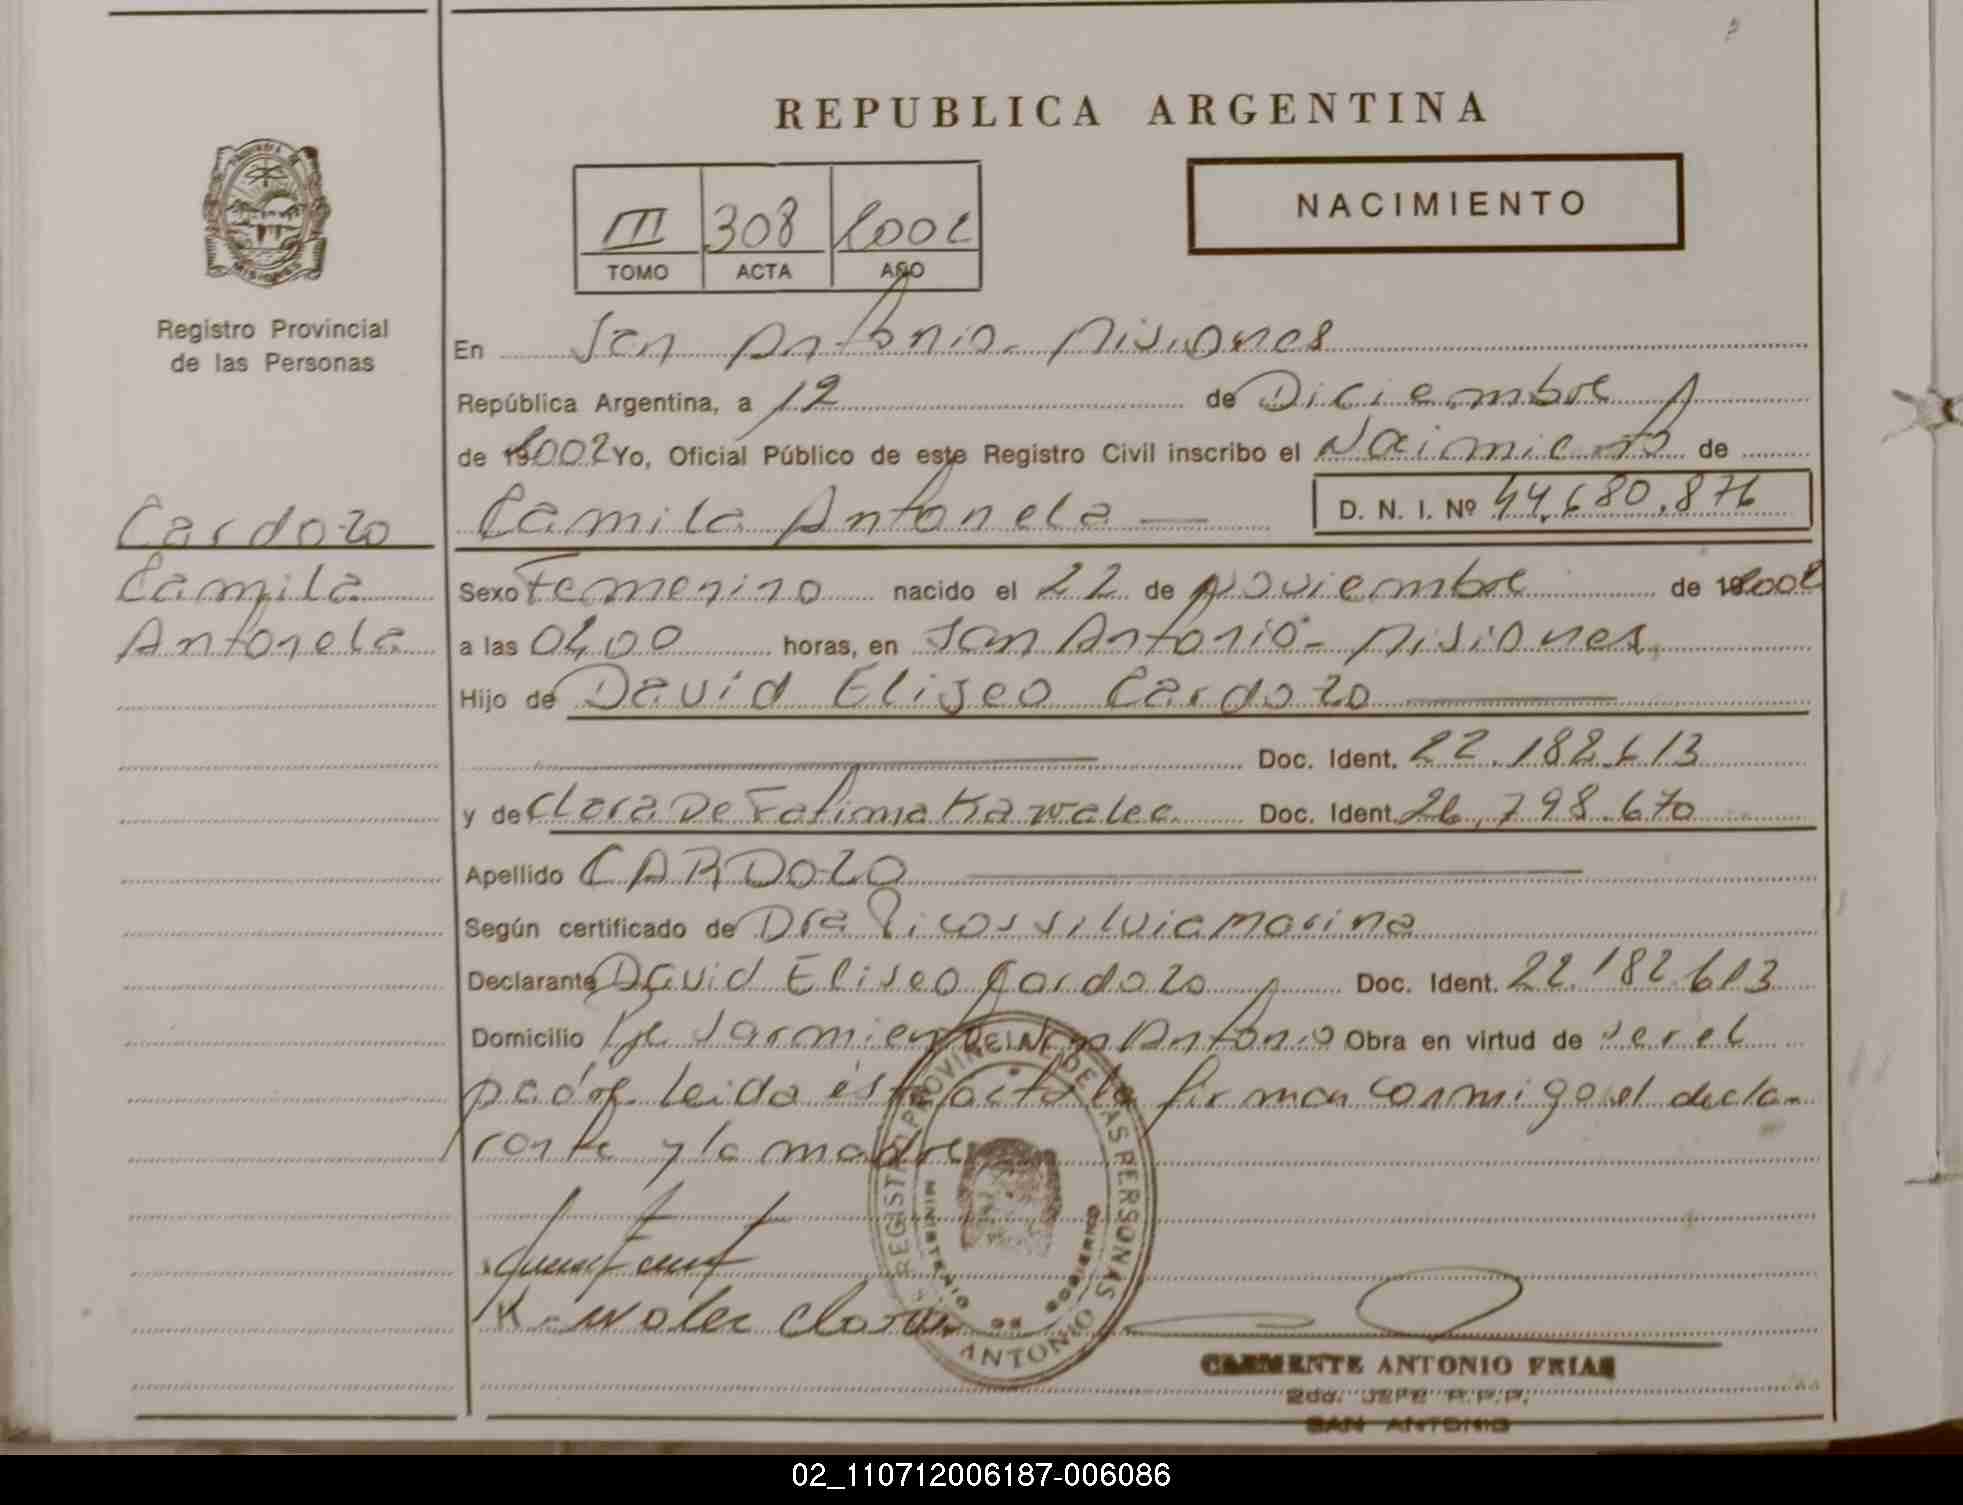 REPUBLICA ARGENTINA
NACIMIENTO
III 308 2002
TOMO ACTA AÑO
PROVINCIA DE
MISIONES
Registro Provincial
de las Personas
En San Antonio - Misiones
República Argentina, a 12 de Diciembre
de 2002 Yo, Oficial Público de este Registro Civil inscribo el Nacimiento de
Cardozo
Camila
Antonela
Camila Antonela — D. N. I. Nº 44.680.876
Sexo Femenino nacido el 22 de Noviembre de 2002
a las 04,00 horas, en San Antonio - Misiones
Hijo de David Eliseo Cardozo
Doc. Ident. 22.182.613
y de Clara De Fatima Kawalec Doc. Ident. 26.798.670
Apellido CARDOZO
Según certificado de Dra Silvia Marina
Declarante David Eliseo Cardozo Doc. Ident. 22.182.613
Domicilio Sarmiento San Antonio Obra en virtud de ser el
padre leida ésta acta la firman conmigo el decla-
rante y la madre
Kawalec Clara
REGISTRO PROVINCIAL DE LAS PERSONAS
MINISTERIO DE GOBIERNO
ANTONIO
CLEMENTE ANTONIO FRIAS
2do. JEFE R.P.P.
SAN ANTONIO
02_110712006187-006086